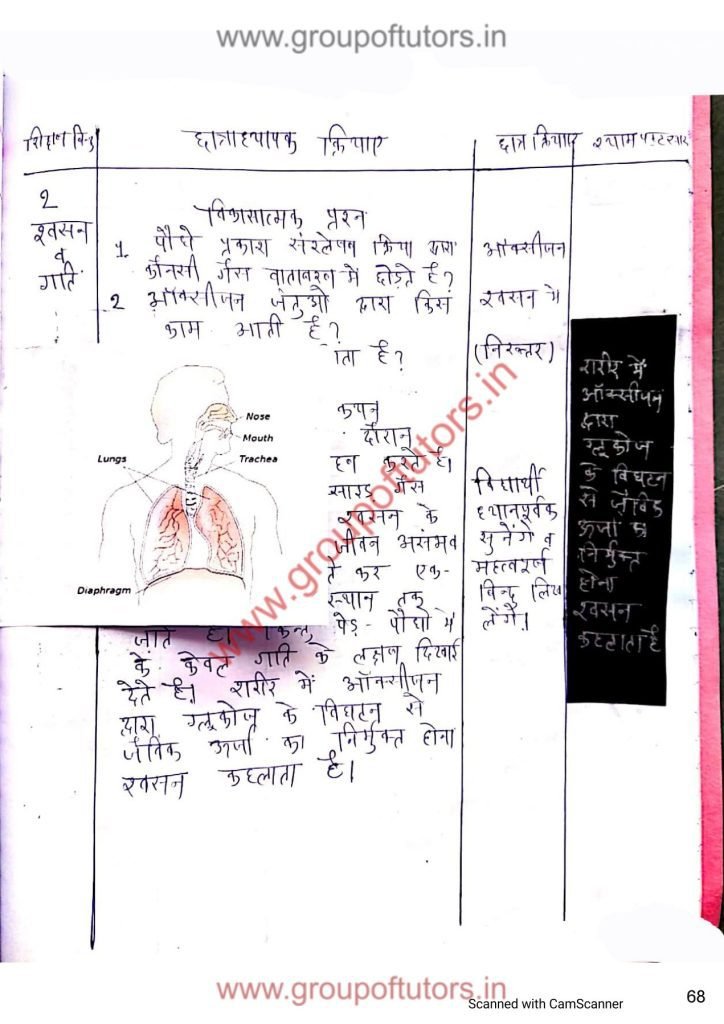 www.groupoftutors.in
शिक्षण बिन्दु
छात्राध्यापक क्रियाएं
छात्र क्रियाएं
श्यामपट्टसार
2
श्वसन
व
गति
विकासात्मक प्रश्न
1. पौधे प्रकाश संश्लेषण क्रिया द्वारा
कौनसी गैस वातावरण में छोड़ते हैं?
2 ऑक्सीजन जंतुओ द्वारा किस
काम आती है?
ाता है?
कथन
दौरान
हन करते हैं।
साइड गैस
श्वसन के
जीवन असंभव
ते कर एक-
स्थान तक
जाते है। किन्तु पेड़-पौधो में
के केवल गति के लक्षण दिखाई
देते है। शरीर में ऑक्सीजन
द्वारा ग्लूकोज के विघटन से
जैविक ऊर्जा का निर्मुक्त होना
श्वसन कहलाता है।
Nose
Mouth
Lungs
Trachea
Diaphragm
ऑक्सीजन
श्वसन मे
(निरुत्तर)
विद्यार्थी
ध्यानपूर्वक
सुनेंगे व
महत्वपूर्ण
बिन्दु लिख
लेंगे।
शरीर में
ऑक्सीजन
द्वारा
ग्लूकोज
के विघटन
से जैविक
ऊर्जा का
निर्मुक्त
होना
श्वसन
कहलाता है
www.groupoftutors.in
www.groupoftutors.in
Scanned with CamScanner
68